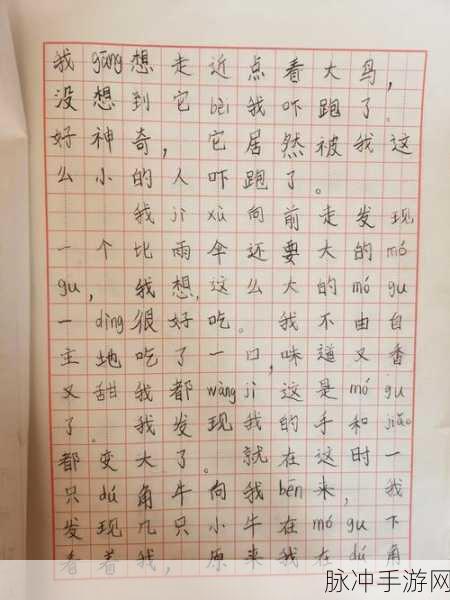 我gāng想走近点看大鸟，
没想到它bèi我吓跑了。
好神奇，它居然被我这
么小的人吓跑了。
我jì xù向前走发现
一个比雨伞还要大的mó
gu，我想，这么大的mó gu
一dìng很好吃。我不由自
主地吃了一口，味道又香
又甜我都wàng jì这是mó gu
了。我发现我的手和jiǎo
都变大了。就在这时一
只dú角牛向我bēn来，我
发现几只小牛在mó gu下
看着我，原来我在dú角
脉冲手游网